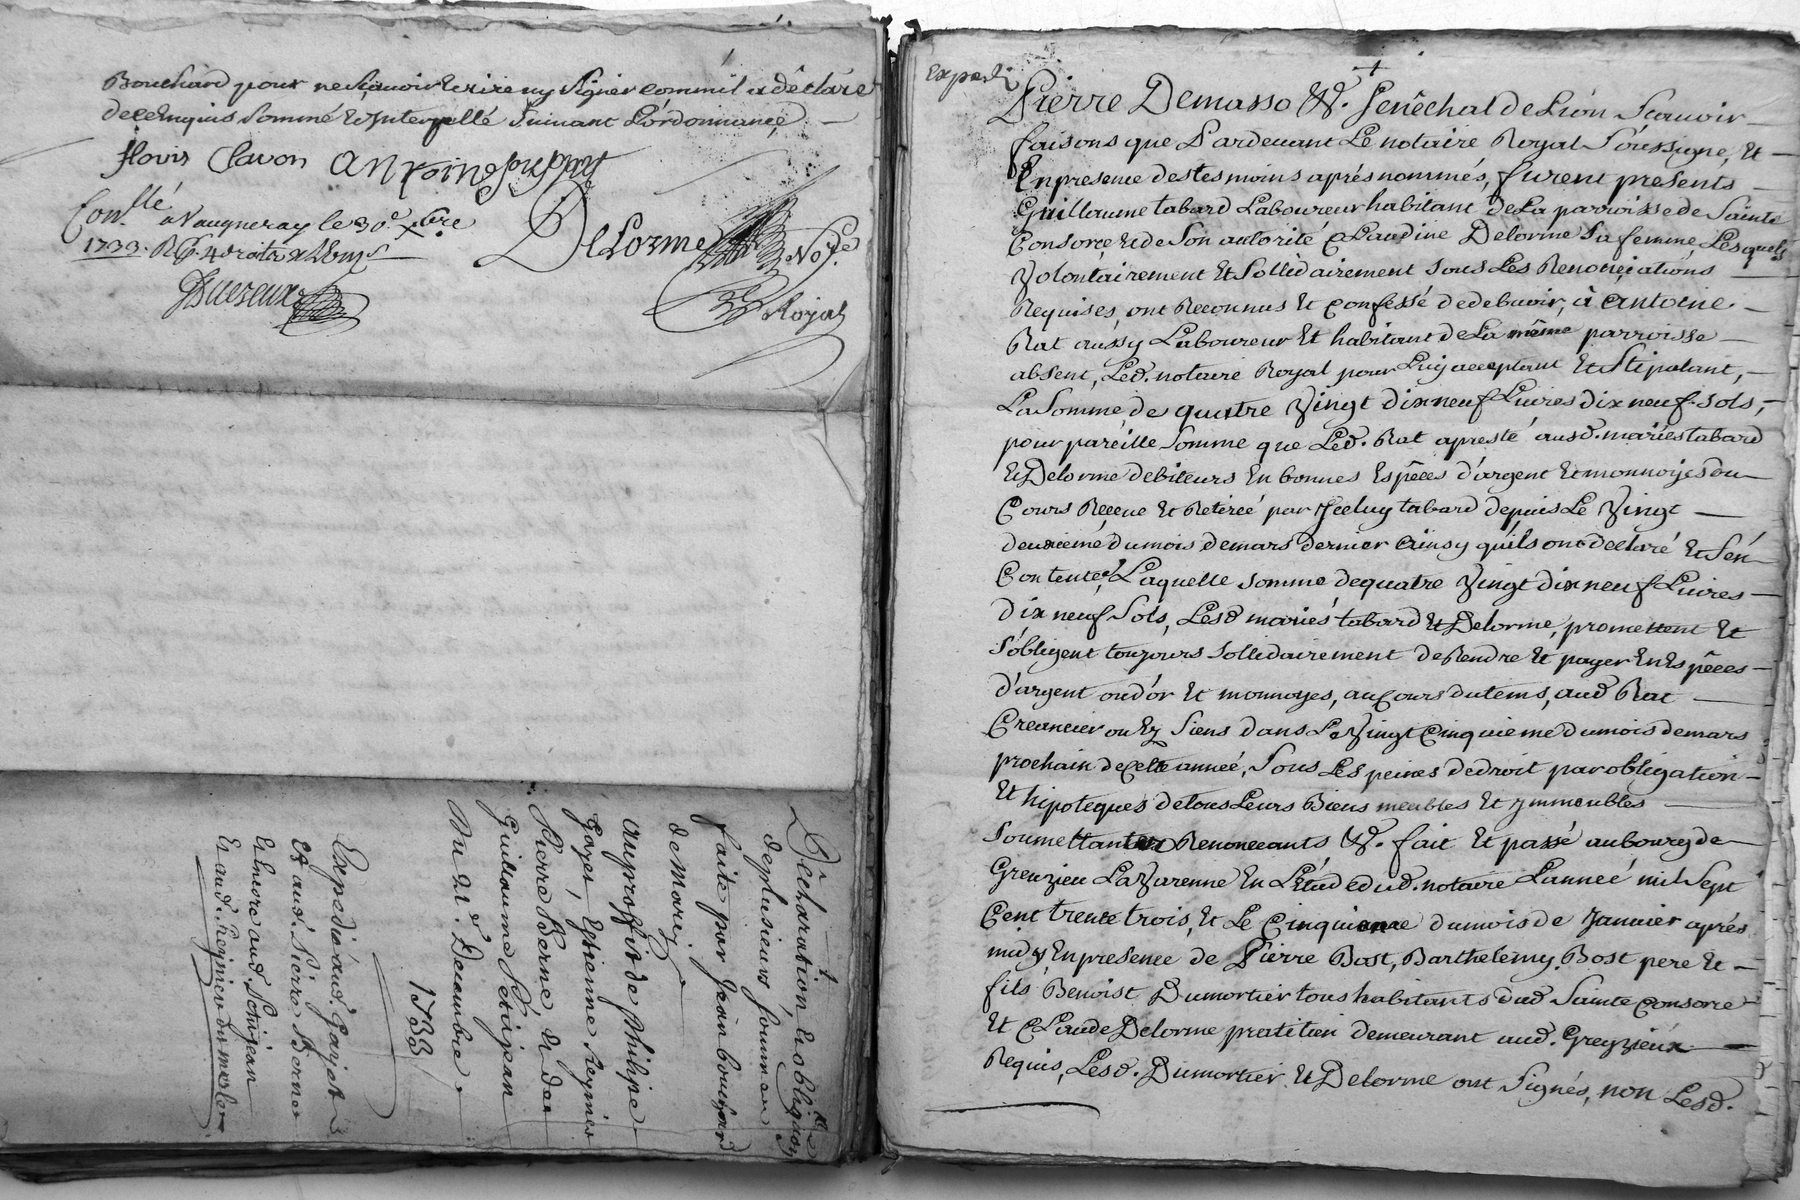 Bouchard pour ne sçavoir Ecrire ny signer comm'il a déclaré
de ce Enquis sommé et Interpellé suivant L'ordonnance
flovis Clavon Antoine
Con.llé a Vaugneray le 30e xbre
1733. R
Delorme No.re
Royal
Déclaration, et obligaon
de plusieurs sommes
faite par Jean bouchard
de Mariz
au proffit de philipe
gayet, Estienne Reynier
Pierre Berne, et de
Guillaume Petitjean
Du 21e Decembre
1733
Expedié aud. Gayet
Et aud. Pierre Berne
Encore aud. Petitjean
Et aud. Reynier du merlo
Expedi
Pierre Demasso &c. Senêchal de Lion Scavoir
faisons que Pardeuant Le notaire Royal Soussigné, Et
En presence des tesmoins aprés nommés, furent presents
Guillaume tabard Laboureur habitant de La parroisse de Sainte
Consorce et de Son autorité Claudine Delorme Sa femme, Lesquels
Volontairement Et Sollidairement sous Les Renonciations
Requises, ont Reconnus Et Confessé de debuoir, à Antoine
Rat aussy Laboureur Et habitant de La même parroisse
absent, Led. notaire Royal pour Luy acceptant Et Stipulant,
La Somme de quatre Vingt dix neuf Liures dix neuf sols,
pour pareille Somme que Led. Rat a presté ausd. mariés tabard
Et Delorme debiteurs En bonnes Espêces d'argent Et monnoyes du
Cours Reçeue Et Retirée par Jceluy tabard depuis Le Vingt
deuxieme du mois de mars dernier Ainsy qu'ils ont declaré Et S'en
Contente, Laquelle somme de quatre Vingt dix neuf Liures
dix neuf Sols, Lesd mariés tabard Et Delorme, promettent Et
S'obligent toujours sollidairement de Rendre Et payer En Espêces
d'argent ou d'or Et monnoyes, au Cours du tems, aud Rat
Creancier ou Ez Siens dans Le Vingt Cinquieme du mois de mars
prochain de Cette année, Sous Les peines de droit par obligation
Et hipoteques de tous Leurs Biens meubles Et Jmmeubles
Soumettant Renonceants &c. fait Et passé au bourg de
Grenzieu La Varenne En L'Etude dud. notaire L'anneé mil Sept
Cent trente trois, Et Le Cinquieme du mois de Januier aprés
midy En presence de Pierre Bost, Barthelemy Bost pere Et
fils, Benoist Dumortier tous habitants dud Sainte Consorce
Et Claude Delorme pratitien demeurant aud. Greyzieux
Requis, Lesd. Dumortier Et Delorme ont Signés, non Lesd.